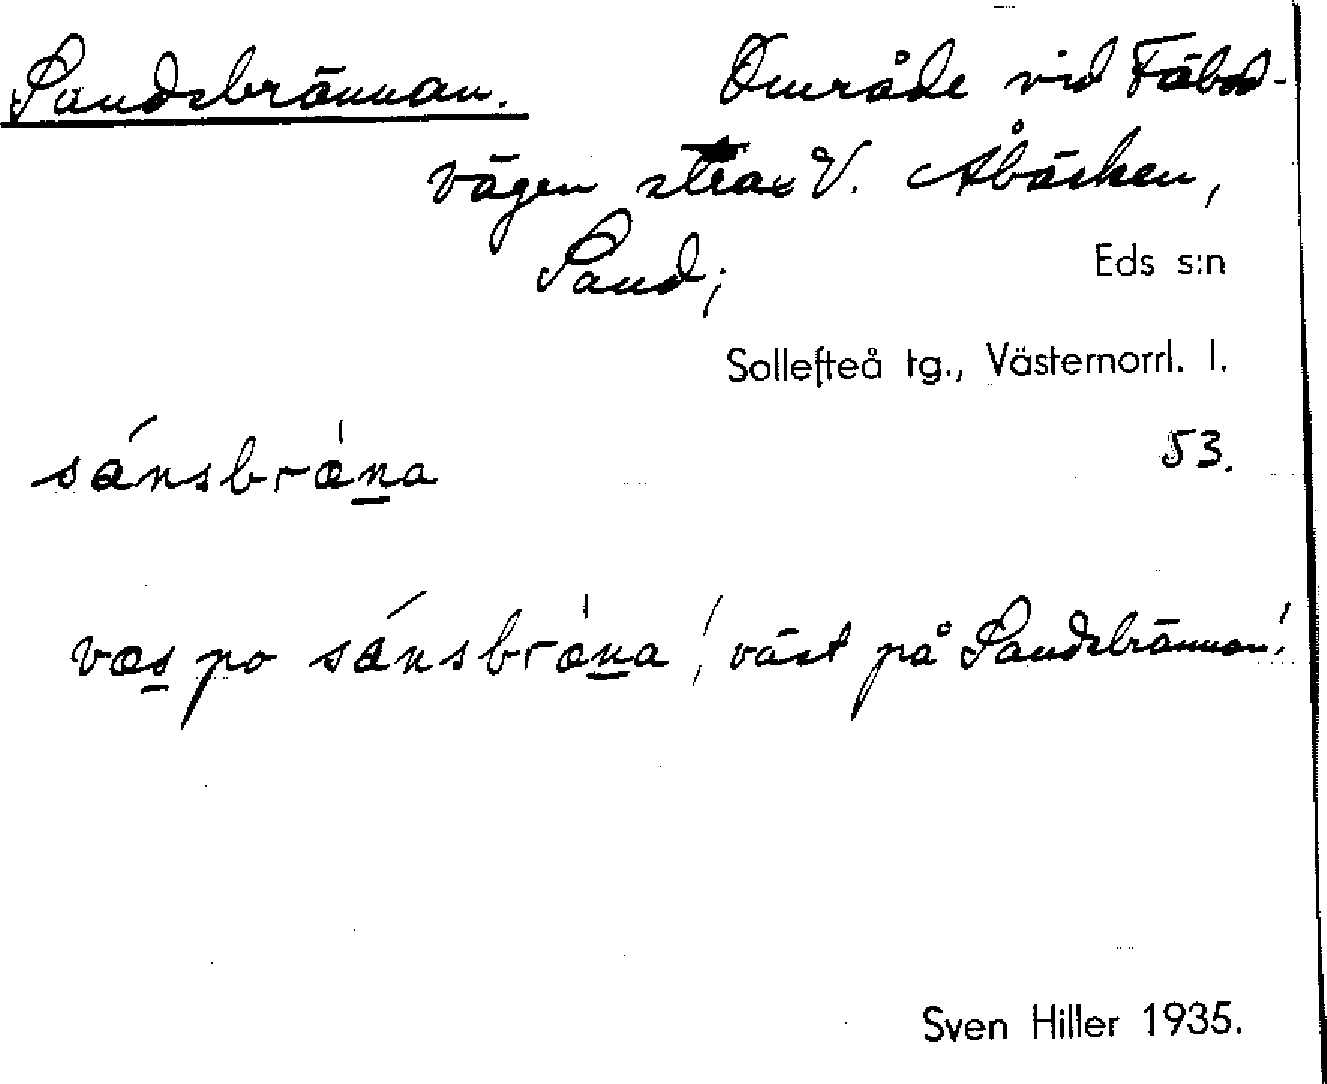 Sandsbrännan. Område vid Fäbod-
vägen strax V. Åbäcken,
Sand;
Eds s:n
Sollefteå tg., Västernorrl. l.
53.
sánsbrǽna
væs po sánsbrǽna / väst på Sandsbrännan!
Sven Hiller 1935.